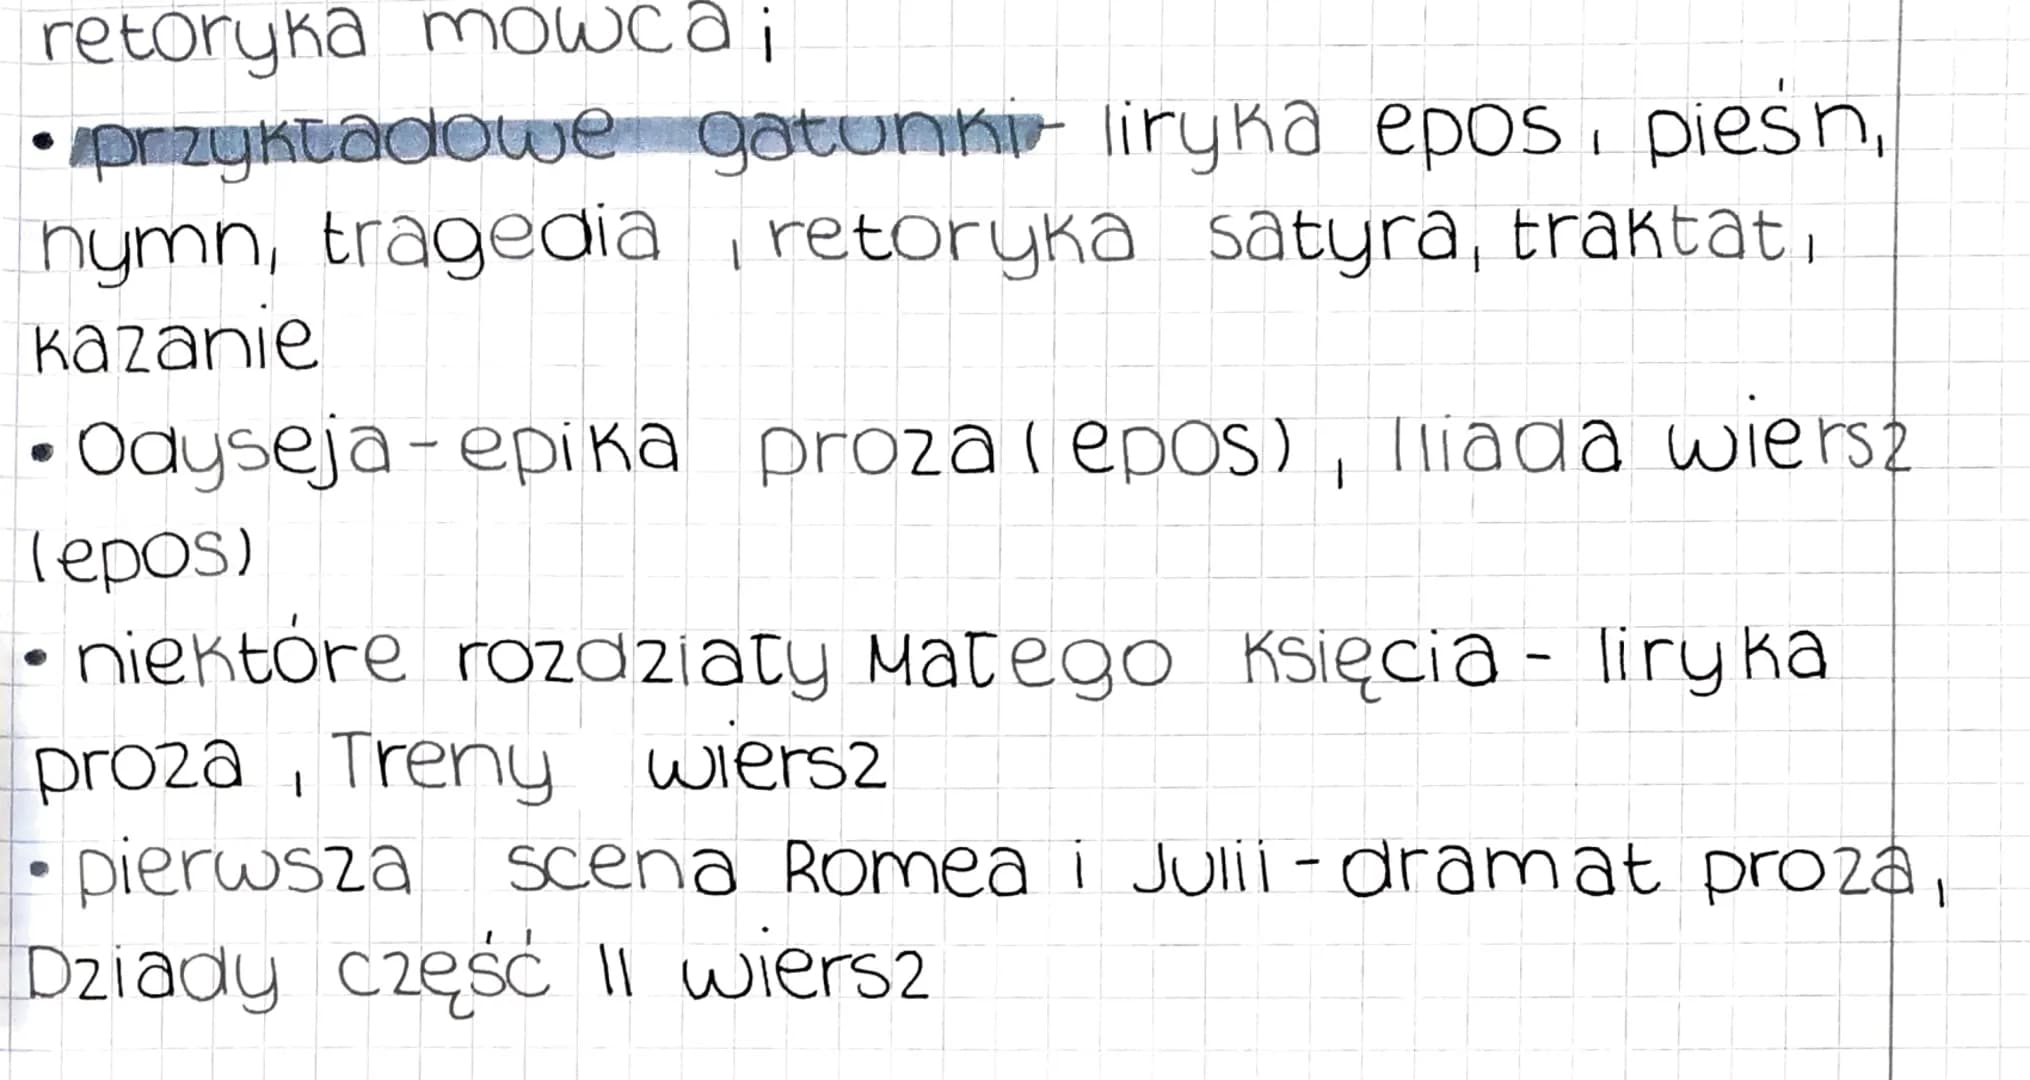 retoryka mowca i
• przykładowe gatunki - liryka epos, pieśn,
hymn, tragedia , retoryka satyra, traktat,
kazanie
• Odyseja - epika proza (epos), Iliada wiersz
(epos)
• niektóre rozdziały Małego Księcia - liryka
proza, Treny wiersz
• pierwsza scena Romea i Julii - dramat proza,
Dziady część II wiersz